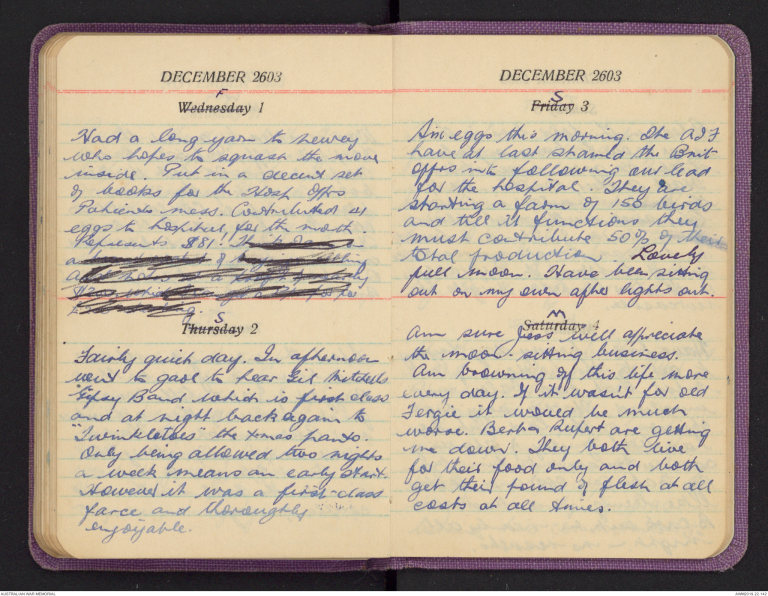 DECEMBER 2603
F
Wednesday 1
Had a long yarn to Newey
who hopes to squash the move
inside. Put in a decent set
of books for the Hosp Offrs
Patients mess. Contributed 41
eggs to hospital for the month.
Represents $81.
S
Thursday 2
Fairly quiet day. In afternoon
went to gaol to hear Gil Mitchells
"Gipsy Band which is first class
and at night back again to
"Twinkletoes" the Xmas panto.
Only being allowed two nights
a week means an early start.
However it was a first-class
farce and thoroughly
enjoyable.
DECEMBER 2603
S
Friday 3
Six eggs this morning. The AIF
have at last shamed the Brit
Offrs into following our lead
for the hospital. They are
starting a farm of 150 birds
and till it functions they
must contribute 50% of their
total production. Lovely
full moon. Have been sitting
out on my own after lights out.
M
Saturday 4
Am sure Jess will appreciate
the moon-sitting business.
Am browning of this life more
every day. If it wasn't for old
Fergie it would be much
worse. Bert Rupert are getting
me down. They both live
for their food only and both
get their pound of flesh at all
costs at all times.
AUSTRALIAN WAR MEMORIAL